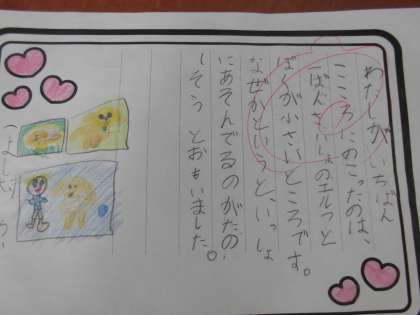 わたしが、いちばん
こころにのこったのは、
いばんさいしょのエルフと
ぼくが小さいところです。
なぜかというと、いっしょ
にあそんでるのがたの
しそうとおもいました。